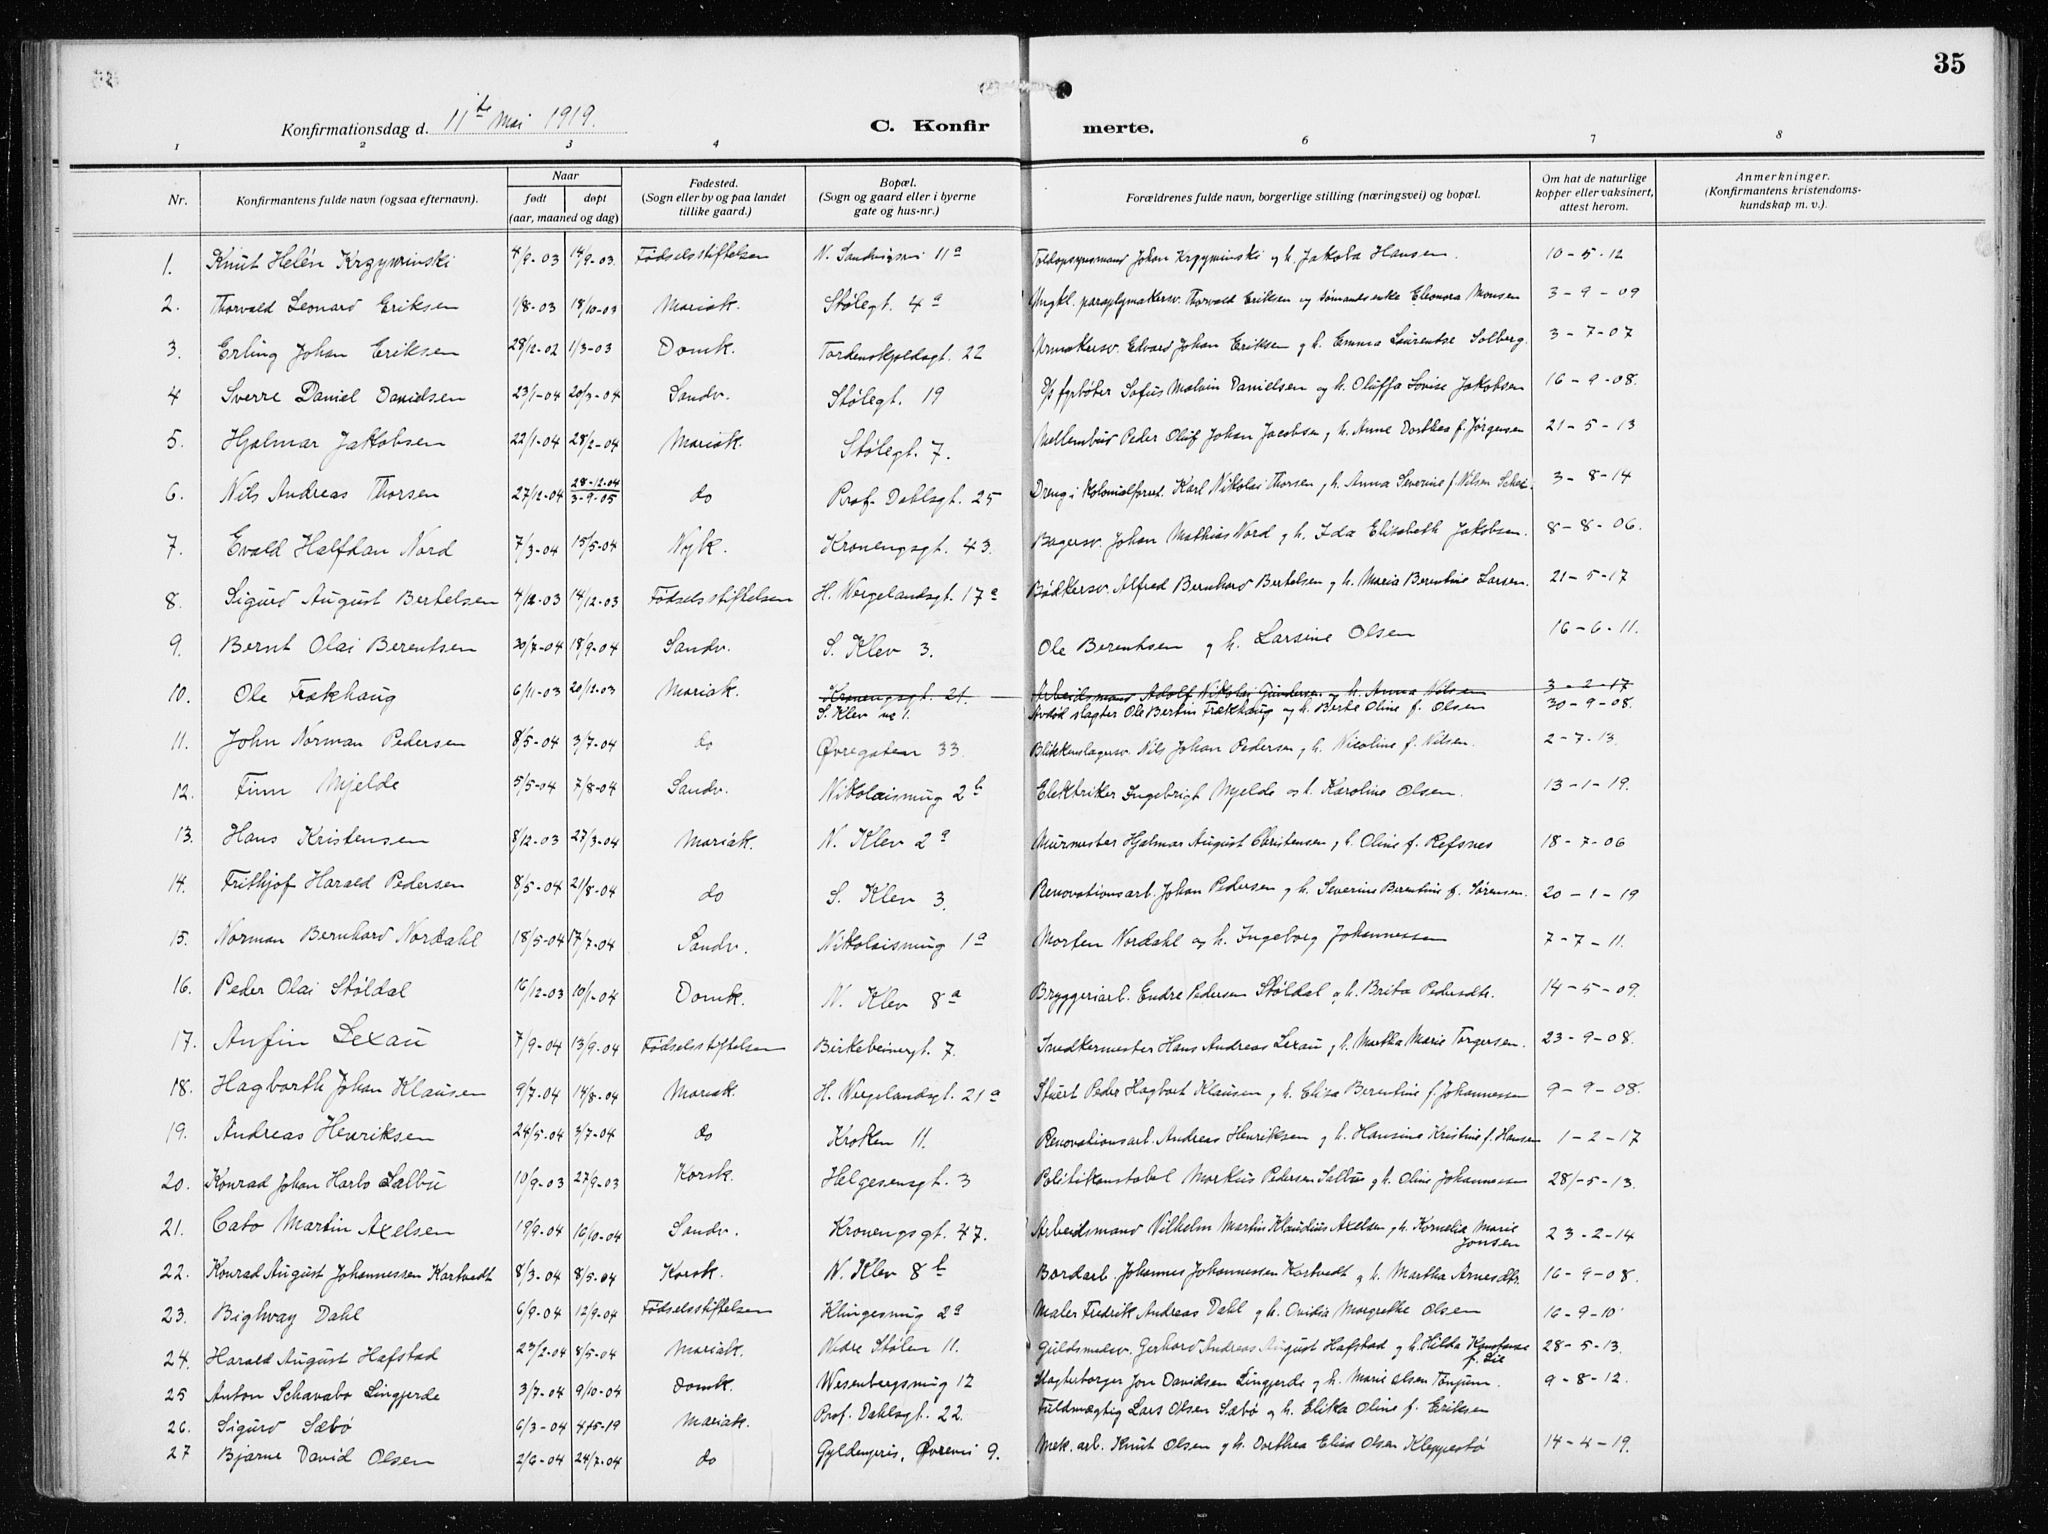 35
Konfirmationsdag d. 11te Mai 1919.
C. Konfir merte.
1 2 3 4 6 7 8
Nr. Konfirmantens fulde navn (ogsaa efternavn). Naar født døpt (aar, maaned og dag) Fødested. (Sogn eller by og paa landet tillike gaard.) Bopæl. (Sogn og gaard eller i byerne gate og hus-nr.) Forældrenes fulde navn, borgerlige stilling (næringsvei) og bopæl. Om hat de naturlige kopper eller vaksinert, attest herom. Anmerkninger. (Konfirmantens kristendoms-kundskap m. v.).
1. Knut Helén Krzyminski 4/9-03 14/9-03 Fødselsstiftelsen N. Sandvigsvei 11a Toldopsynsmand Johan Krzyminski og h. Jakoba Hansen. 10-5-12
2. Thorvald Leonard Eriksen 1/8-03 18/10-03 Mariak. Stølegt. 4a Ungkl. paraplymakersv. Thorvald Eriksen og sømandsenke Eleonora Monsen 3-9-09
3. Erling Johan Eriksen 28/12-02 1/3-03 Domk. Tordenskjoldsgt. 22 Urmakersv. Edvard Johan Eriksen og h. Emma Laurentse Solberg. 3-7-07
4 Sverre Daniel Danidsen 23/1-04 20/3-04 Sandv. Stølegt. 19 D/s fyrbøter Sofus Malvin Danielsen og h. Oluffa Lovise Jakobsen 16-9-08.
5. Hjalmar Jakobsen 22/1-04 28/2-04 Mariak. Stølegt. 7. Mellembud Peder Oluf Johan Jacobsen og h. Anne Dorthea f. Jørgensen 21-5-13
6. Nils Andreas Thorsen 27/12-04 28-12-04 3-9-05 do Prof. Dahlsgt. 25 Dreng i Kolonialforret. Karl Nikolai Thorsen og h. Anna Severine f. Nilsen 3-8-14
7. Evald Halfdan Nord 7/3-04 15/5-04 Nyk. Kronengsgt. 43. Bagersv. Johan Mathias Nord og h. Ida Elisabeth Jakobsen. 8-8-06.
8. Sigurd August Bertelsen 4/12-03 14/12-03 Fødselsstiftelsen H. Wergelandsgt. 17a Bødkersv. Alfred Bernhard Bertelsen og h. Maria Berentine Larsen. 21-5-17
9. Bernt Olai Berentsen 20/7-04 18/9-04 Sandv. S. Klev 3. Ole Berentsen og h. Larsine Olsen 16-6-11.
10. Ole Frækhaug 6/11-03 20/12-03 Mariak. Kronengsgt. 21. Arbeidsmand Adolf Nikolai Gundersen og h. Anna Nilsen 3-2-17
S. Klev no 1. Avdød slagter Ole Bertin Frækhaug og h. Berte Oline f. Olsen 30-9-08.
11. John Norman Pedersen 8/5-04 3/7-04 do Øvregaten 33 Blikkenslagersv. Nils Johan Pedersen og h. Nicoline f. Nilsen. 2-7-13.
12. Finn Mjelde 5/5-04 7/8-04 Sandv. Nikolaismug 2b Elektriker Ingebrigt Mjelde og h. Karoline Olsen. 13-1-19.
13. Hans Kristensen 8/12-03 27/3-04 Mariak. N. Klev 2a Murmester Hjalmar August Christensen og h. Oline f. Refsnes 18-7-06
14. Frithjof Harald Pedersen 8/5-04 21/8-04 do S. Klev 3. Renovationsarb. Johan Pedersen og h. Severine Berentine f. Sørensen. 20-1-19
15. Norman Bernhard Nordahl 18/5-04 17/7-04 Sandv. Nikolaismug 1a Morten Nordahl og h. Ingeborg Johannessen 7-7-11.
16. Peder Olai Støldal 16/12-03 10/1-04 Domk. N. Klev 8a Bryggeriarb. Endre Pedersen Støldal og h. Brita Pedersdtr. 14-5-09.
17. Anfin Lexau 7/9-04 13/9-04 Fødselsstiftelsen Birkebeinergt. 7. Snedkermester Hans Andreas Lexau og h. Martha Marie Torgersen. 23-9-08.
18. Hagbarth Johan Klausen 9/7-04 14/8-04 Mariak. H. Wergelandsgt. 21a Stuert Peder Hagbart Klausen og h. Elisa Berentine f. Johannessen 9-9-08.
19. Andreas Henriksen 24/5-04 3/7-04 do Kroken 11. Renovationsarb. Andreas Henriksen og h. Hansine Kristine f. Hansen 1-2-17
20. Konrad Johan Harbo Salbu 10/9-03 27/9-03 Korsk. Helgesensgt. 3 Politikonstabel Markus Pedersen Salbu og h. Oline Johannessen 28/-5-13.
21. Cato Martin Axelsen 19/9-04 16/10-04 Sandv. Kronengsgt. 47. Arbeidsmand Vilhelm Martin Klaudius Axelsen og h. Kornelia Marie Jonsen 23-2-14
22. Konrad August Johannessen Kartvedt 8/3-04 8/5-04 Korsk. N. Klev 8b Bordarb. Johannes Johannessen Kartvedt og h. Martha Arnesdtr. 16-9-08.
23. Bighvay Dahl 6/9-04 12/9-04 Fødselsstiftelsen Klingesmug 2a Maler Fredrik Andreas Dahl og h. Ovidia Margrethe Olsen 16-9-10
24. Harald August Hafstad 23/2-04 8/5-04 Mariak. Nedre Stølen 11. Guldsmedsv. Gerhard Andreas August Hafstad og h. Hilda Konstanse f. Lie 28-5-13.
25 Anton Schavabo Lingjerde 3/7-04 9/10-04 Domk. Wesenbergsmug 12 Slagterborger Jon Davidsen Lingjerde og h. Marie Olsen Tønjum. 9-8-12.
26. Sigurd Sæbø 6/3-04 4/5-19 Mariak. Prof. Dahlsgt. 22. Fuldmægtig Lars Olsen Sæbø og h. Elika Oline f. Eriksen
27 Bjarne David Olsen 2/6-04 24/7-04 do Gyldenpris, Øvrevei 9. Mek. arb. Knut Olsen og h. Dorthea Elisa Olsen Kleppestø 14-4-19.